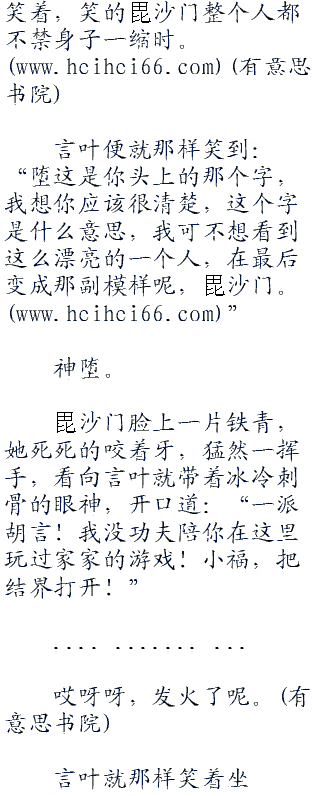 笑着，笑的毘沙门整个人都
不禁身子一缩时。
(www.hcihci66.com)(有意思
书院)
言叶便就那样笑到：
“堕这是你头上的那个字，
我想你应该很清楚，这个字
是什么意思，我可不想看到
这么漂亮的一个人，在最后
变成那副模样呢，毘沙门。
(www.hcihci66.com)”
神堕。
毘沙门脸上一片铁青，
她死死的咬着牙，猛然一挥
手，看向言叶就带着冰冷刺
骨的眼神，开口道：“一派
胡言！我没功夫陪你在这里
玩过家家的游戏！小福，把
结界打开！”
.... ....... ...
哎呀呀，发火了呢。(有
意思书院)
言叶就那样笑着坐